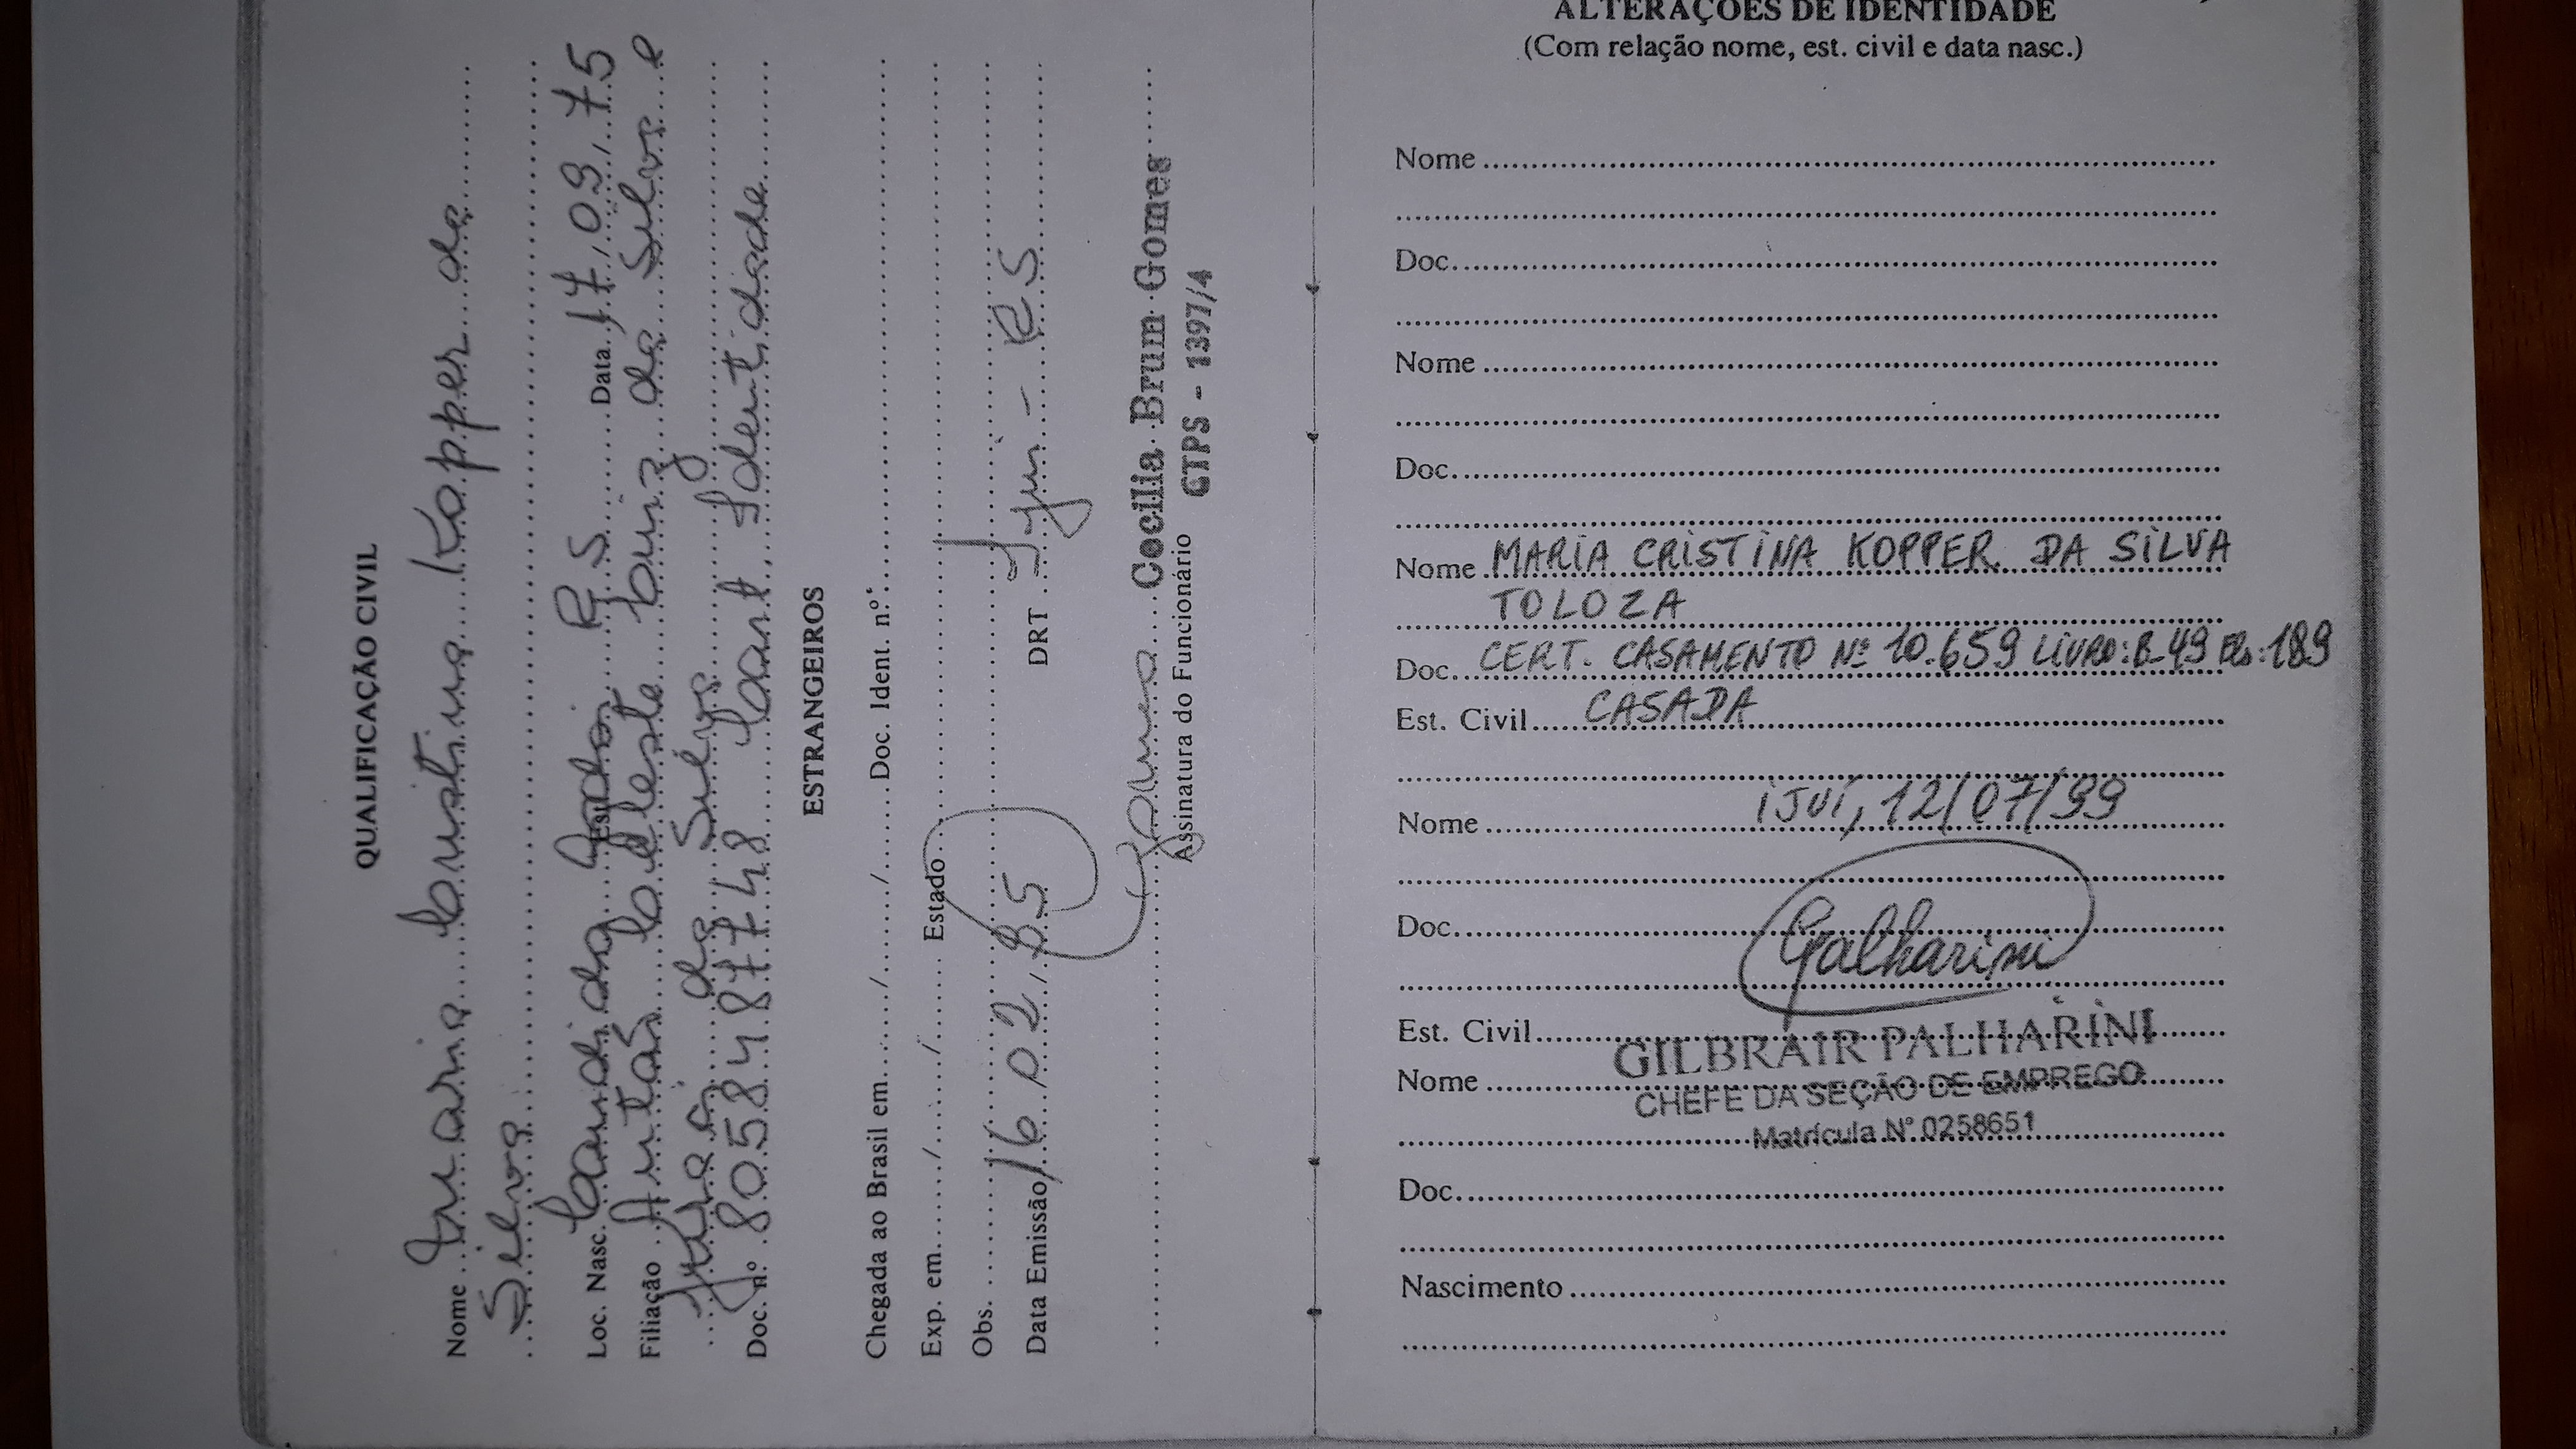 QUALIFICAÇÃO CIVIL
Nome Maria Cristina Kopper da
Silva
Loc. Nasc. Cândido Godói Est. RS Data 17/09/75
Filiação Antão Celeste Luiz da Silva e
da Silva
Doc. nº 8058487748 Cart. Identidade
ESTRANGEIROS
Chegada ao Brasil em ......./......./....... Doc. Ident. n.º
Exp. em ......./......./....... Estado
Obs.
Data Emissão 16/02/ DRT Ijui - RS
Cecilia Brun Gomes
Assinatura do Funcionário CTPS - 1397/4
ALTERAÇÕES DE IDENTIDADE
(Com relação nome, est. civil e data nasc.)
Nome
Doc.
Nome
Doc.
Nome MARIA CRISTINA KOPPER DA SILVA
TOLOZA
Doc. CERT. CASAMENTO Nº 10.659 LIVRO: B-49 Fls: 189
Est. Civil CASADA
Nome IJUÍ, 12/07/99
Doc. Palharini
Est. Civil
GILBRAIR PALHARINI
Nome
CHEFE DA SEÇÃO DE EMPREGO
Matrícula Nº 0258651
Doc.
Nascimento